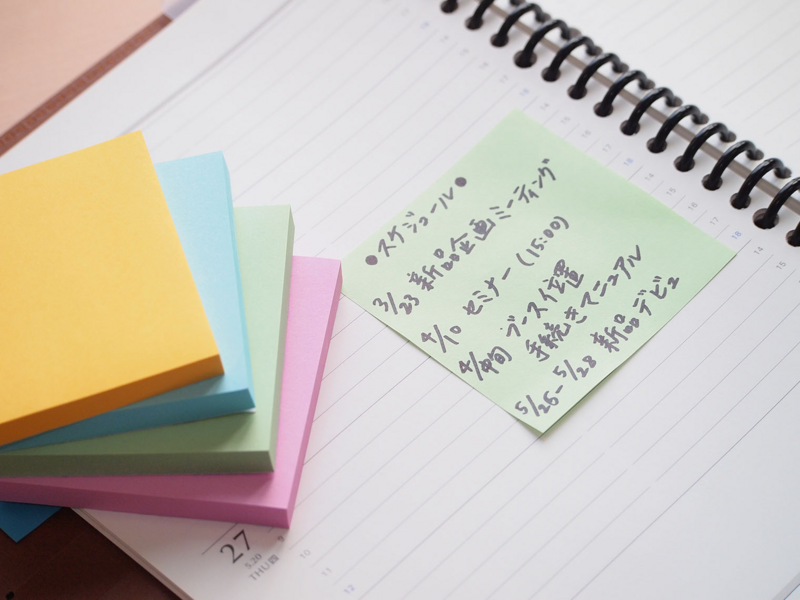 ●スケジュール●
3/23 新品企画ミーティング
4/10 セミナー (15:00)
4/中旬 ブース位置
手続きマニュアル
5/26-5/28 新品デビュ
27
5.20
THU
9
10
11
12
13
14
15
16
17
18
14
15
16
17
18
14
15